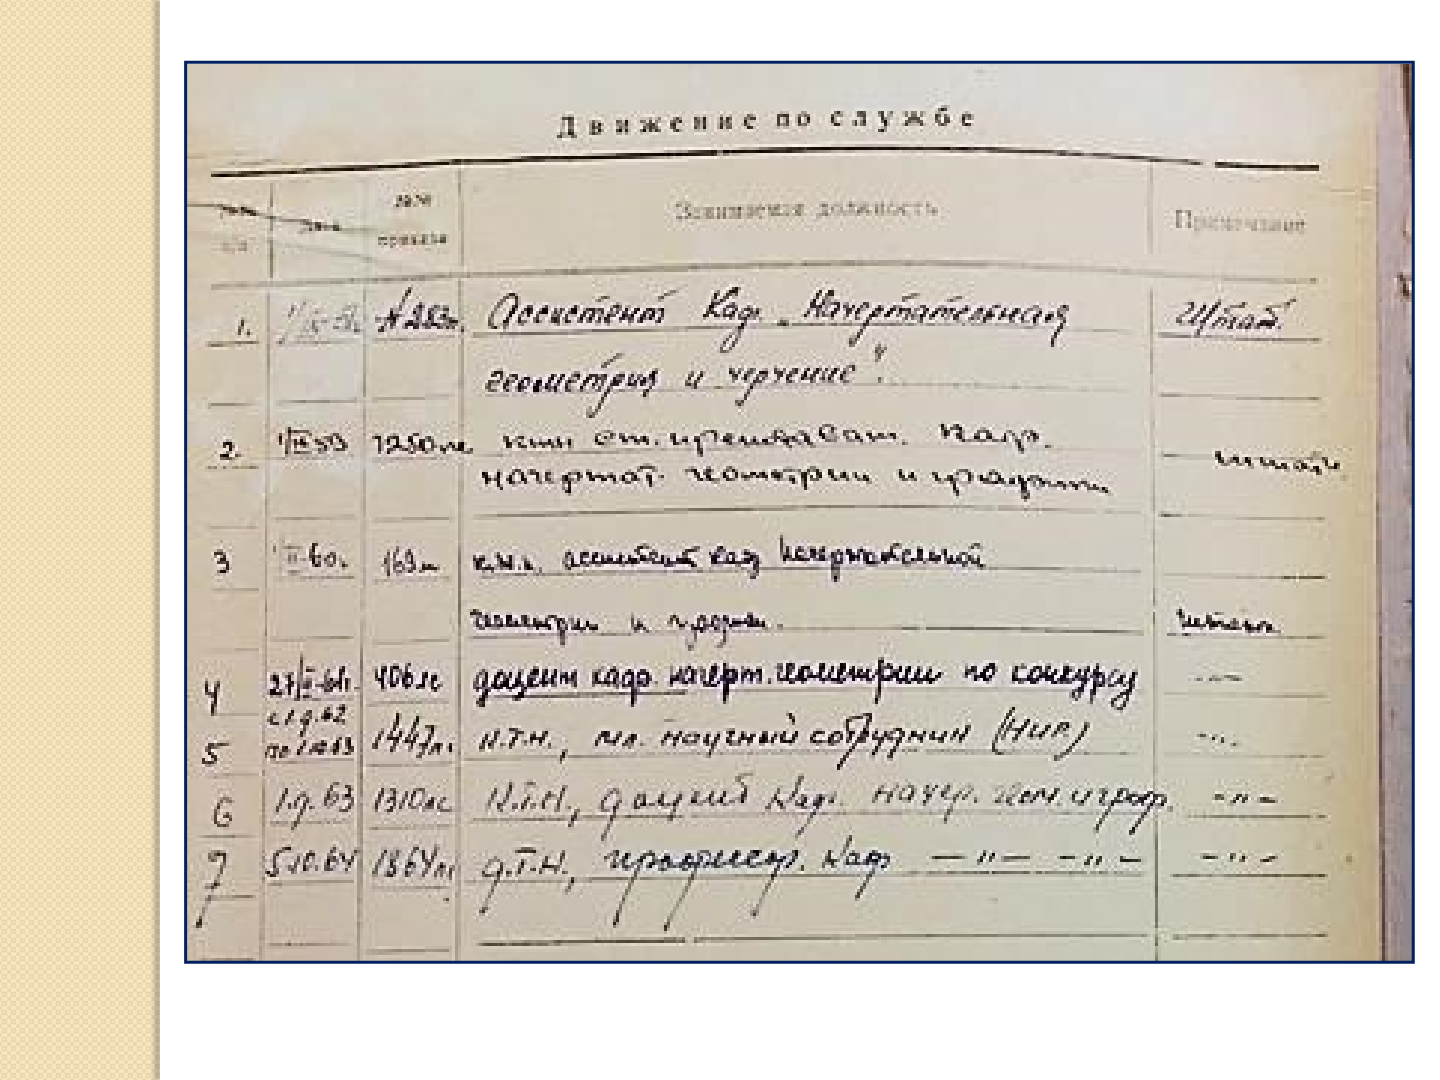 Движение по службе
№№ п/п Дата №№ приказа Занимаемая должность Примечание
1. №283л. Ассистент Каф. „Начертательная Штат.
геометрия и черчение".
2 1/IX 59 1250лс ктн ст. преподават. кафр. штатн.
начертат. геометрии и графики
3 1/II-60г. 169л к.т.н. ассистент каф Начертательной
геометрии и графики. штатн.
4 406лс доцент кафр. начерт. геометрии по конкурсу —"—
5 с 1.9.62 по 1.10.63 1447лс К.Т.Н., мл. научный сотрудник (НИР) -"-
6 1.9.63 1310лс К.Т.Н., доцент каф. начер. геом. и граф. -"-
7 5.10.64 1864лс Д.Т.Н., профессор. каф —"— —"— -"-